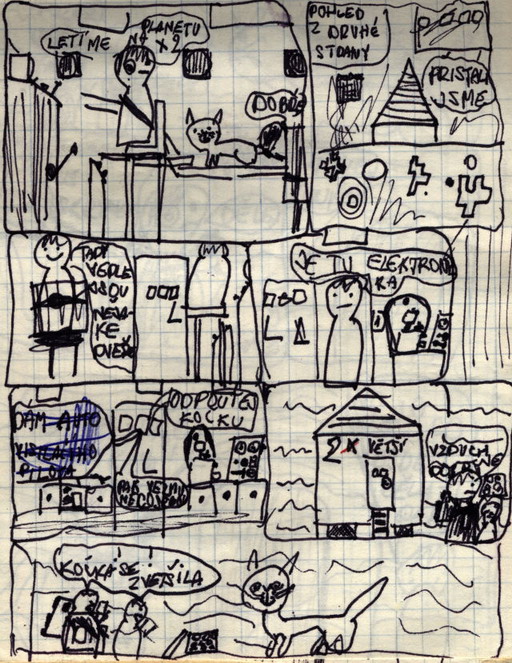 LETÍME
NA PLANETU
X2
DOBŘE
POHLED
Z DRUHÉ
STRANY
PŘISTÁLI
JSME
TADY
VEDLE
JSOU
NĚJA-
KÉ
DVEŘE
JE TU ELEKTRONI
KA
DÁM
ODPOUTEJ
KOČKU
2 X VĚTŠÍ
VZDUCH
KOČKA SE
ZVĚTŠILA